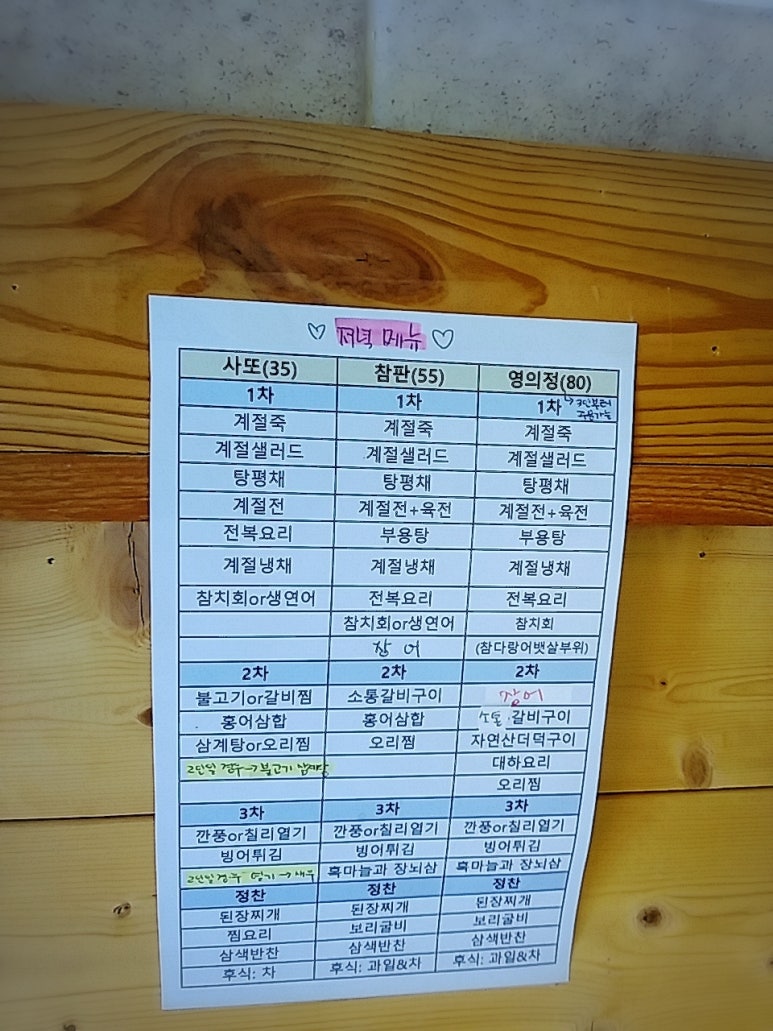 ♡ 저녁 메뉴 ♡
사또(35) 참판(55) 영의정(80)
1차 1차 1차 ↳ 3인부터 주문가능
계절죽 계절죽 계절죽
계절샐러드 계절샐러드 계절샐러드
탕평채 탕평채 탕평채
계절전 계절전+육전 계절전+육전
전복요리 부용탕 부용탕
계절냉채 계절냉채 계절냉채
참치회or생연어 전복요리 전복요리
참치회or생연어 참치회
장어 (참다랑어뱃살부위)
2차 2차 2차
불고기or갈비찜 소통갈비구이 장어
홍어삼합 홍어삼합 소통 갈비구이
삼계탕or오리찜 오리찜 자연산더덕구이
2인일 경우→불고기 삼계탕 대하요리
오리찜
3차 3차 3차
깐풍or칠리열기 깐풍or칠리열기 깐풍or칠리열기
빙어튀김 빙어튀김 빙어튀김
2인일경우 열기→새우 흑마늘과 장뇌삼 흑마늘과 장뇌삼
정찬 정찬 정찬
된장찌개 된장찌개 된장찌개
찜요리 보리굴비 보리굴비
삼색반찬 삼색반찬 삼색반찬
후식: 차 후식: 과일&차 후식: 과일&차